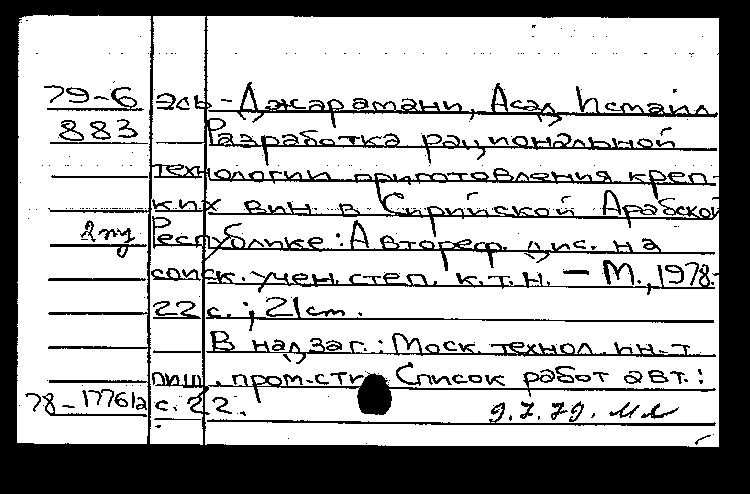 79-6 эль-Джарамани, Асад Исмаил.
883 Разработка рациональной
технологии приготовления креп-
ких вин в Сирийской Арабской
Республике: Автореф. дис. на
соиск. учен. степ. к.т.н. — М., 1978.-
22 с.; 21 см.
В надзаг.: Моск. технол. ин-т
пищ. пром-сти. Список работ авт.:
78-17761а с. 22.